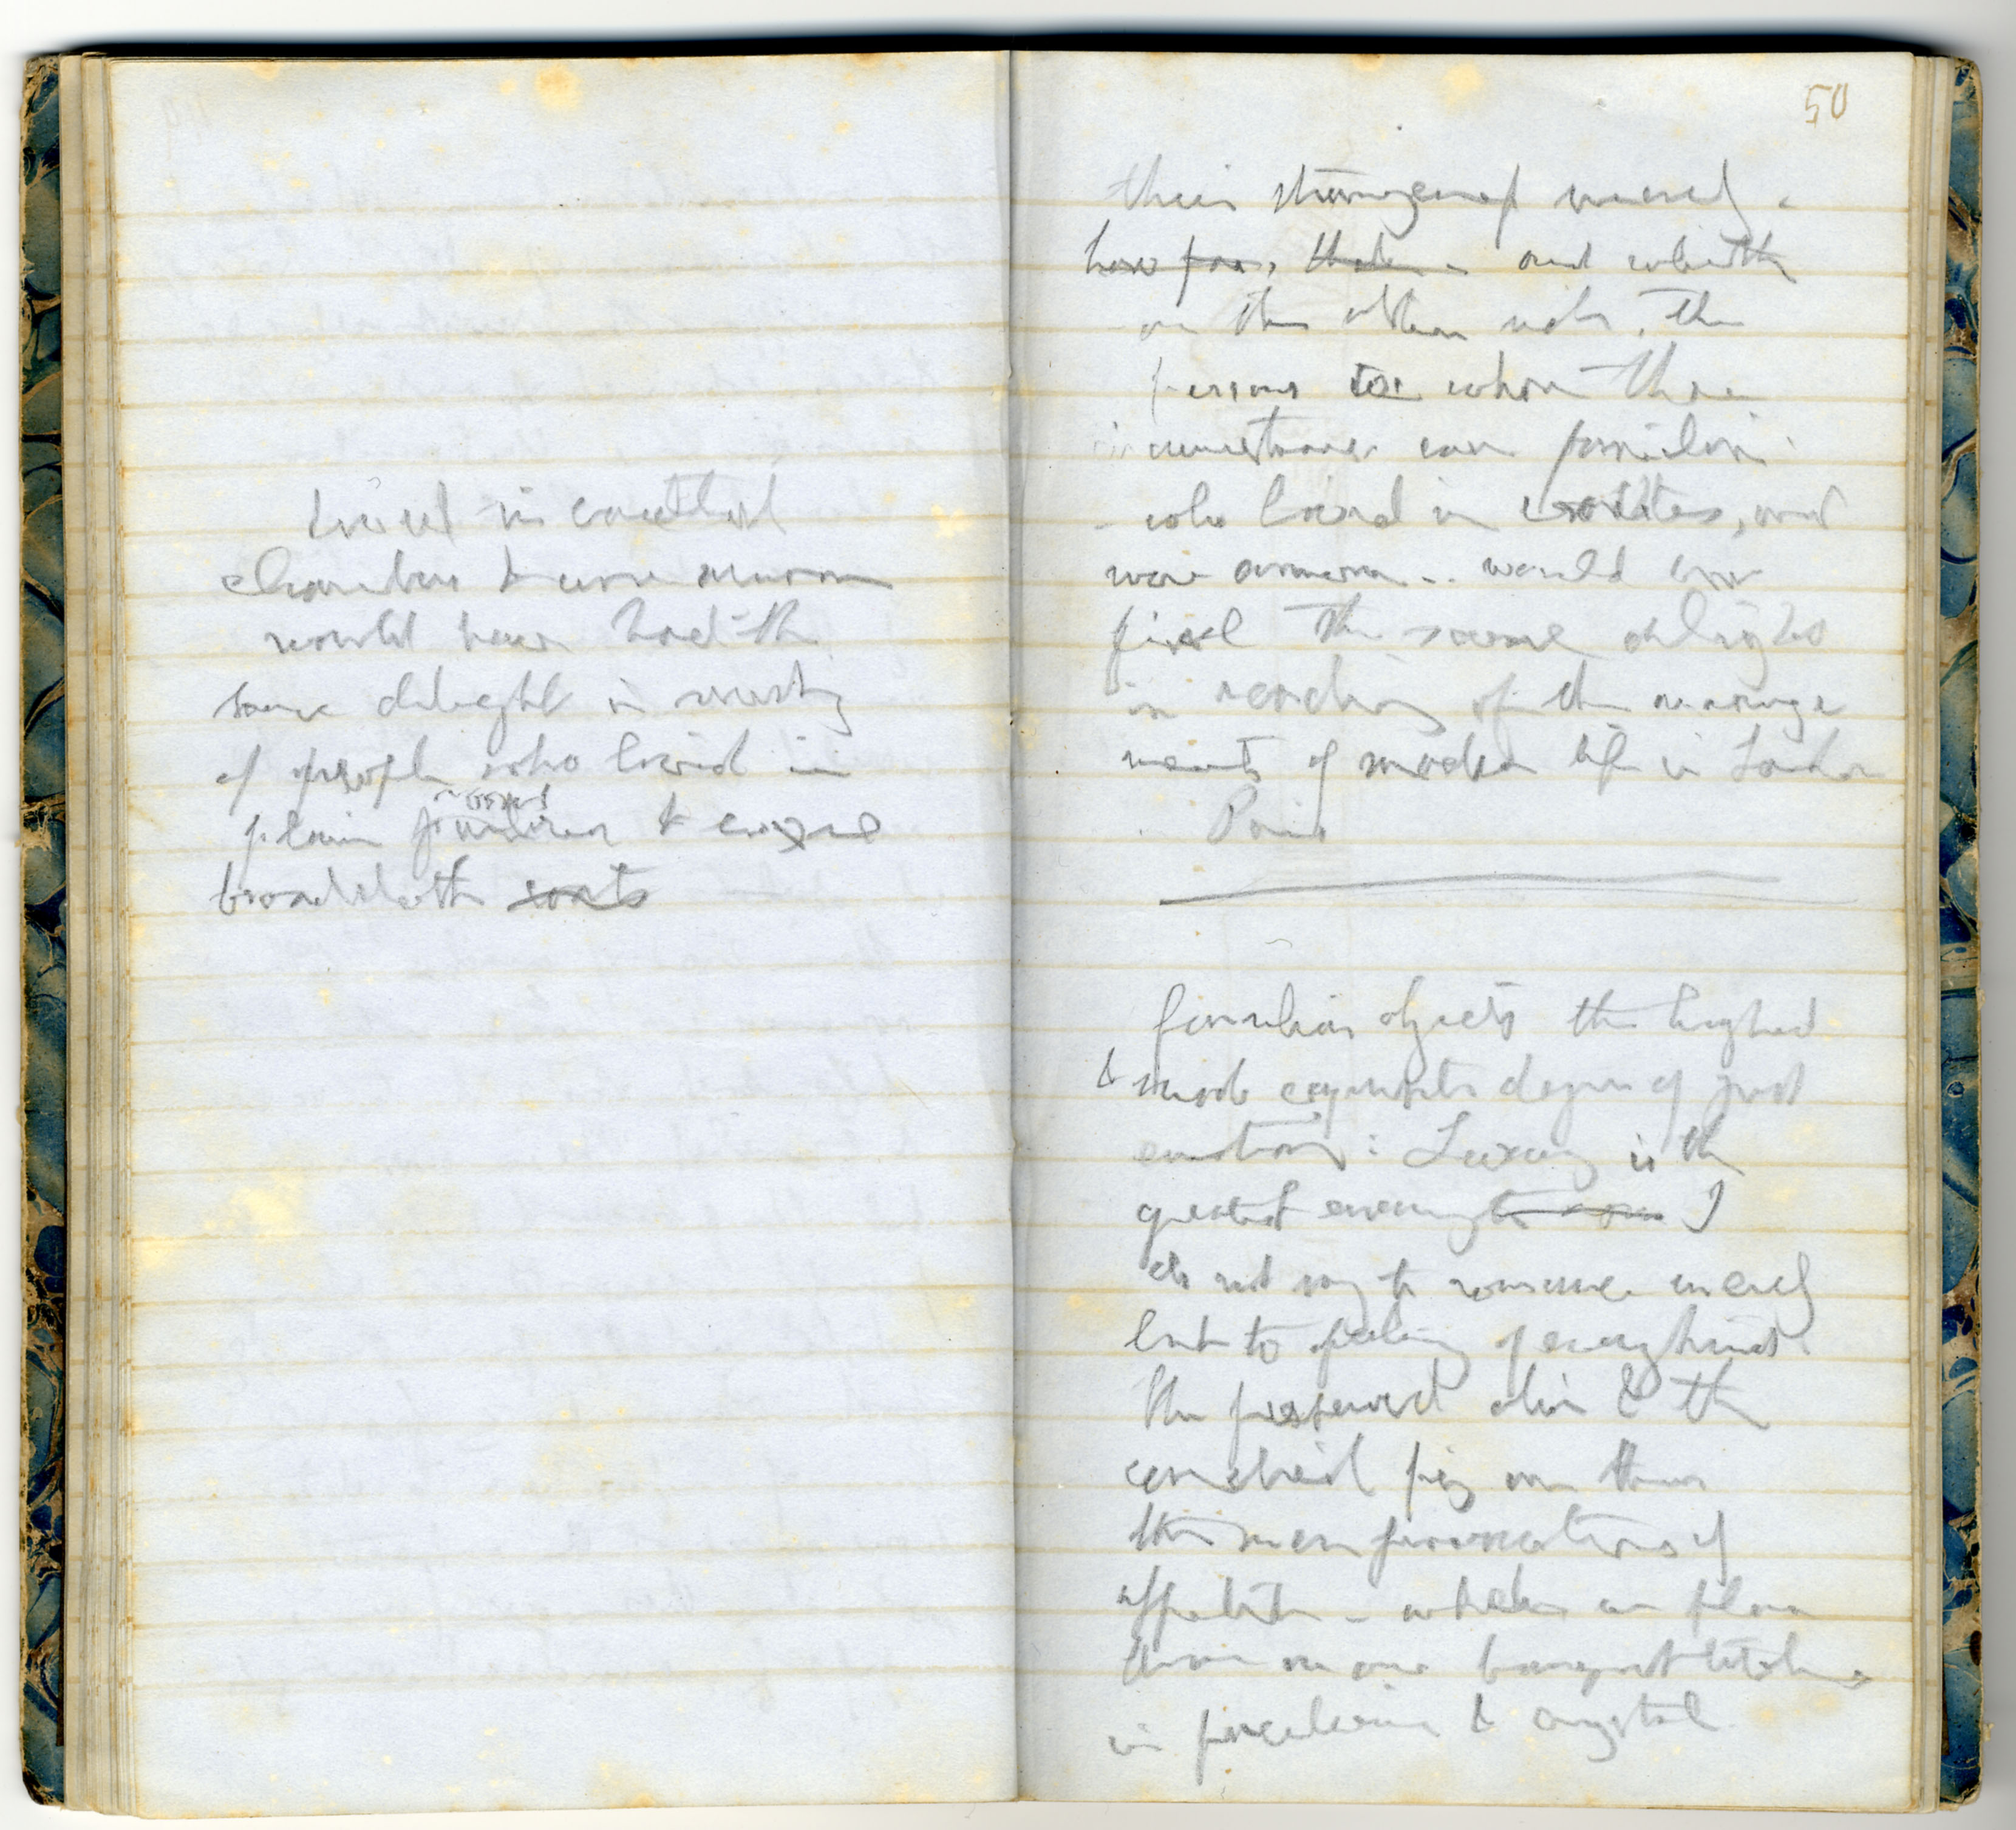 lived in castled
chambers & wore armour
would have had the
same delight in reading
of people who lived in
plain rooms & wore
broadcloth coats
50
their strangeness merely -
how far, and whether
on the other side, the
persons to whom these
circumstances were familiar
- who lived in castles, and
wore armour .. would have
the same delight
in reading of the arrange
ments of modern life in London
Paris
familiar objects the highest
& most exquisite degree of
emotion: Luxury is the
greatest enemy I
do not say to romance merely
but to feeling of every kind.
The preserved olive & the
candied fig are then
the mere provocations of
appetite - which we place
in porcelain & crystal